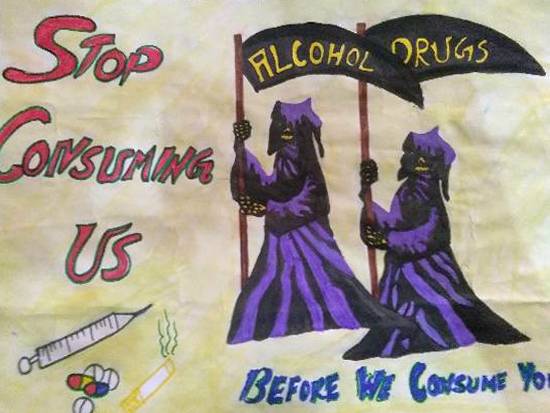 STOP
CONSUMING
US
ALCOHOL
DRUGS
BEFORE WE CONSUME YOU